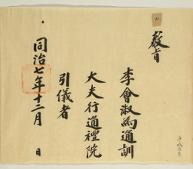 敎旨
李會淑爲通訓
大夫行通禮院
引儀者
同治七年十二月　日